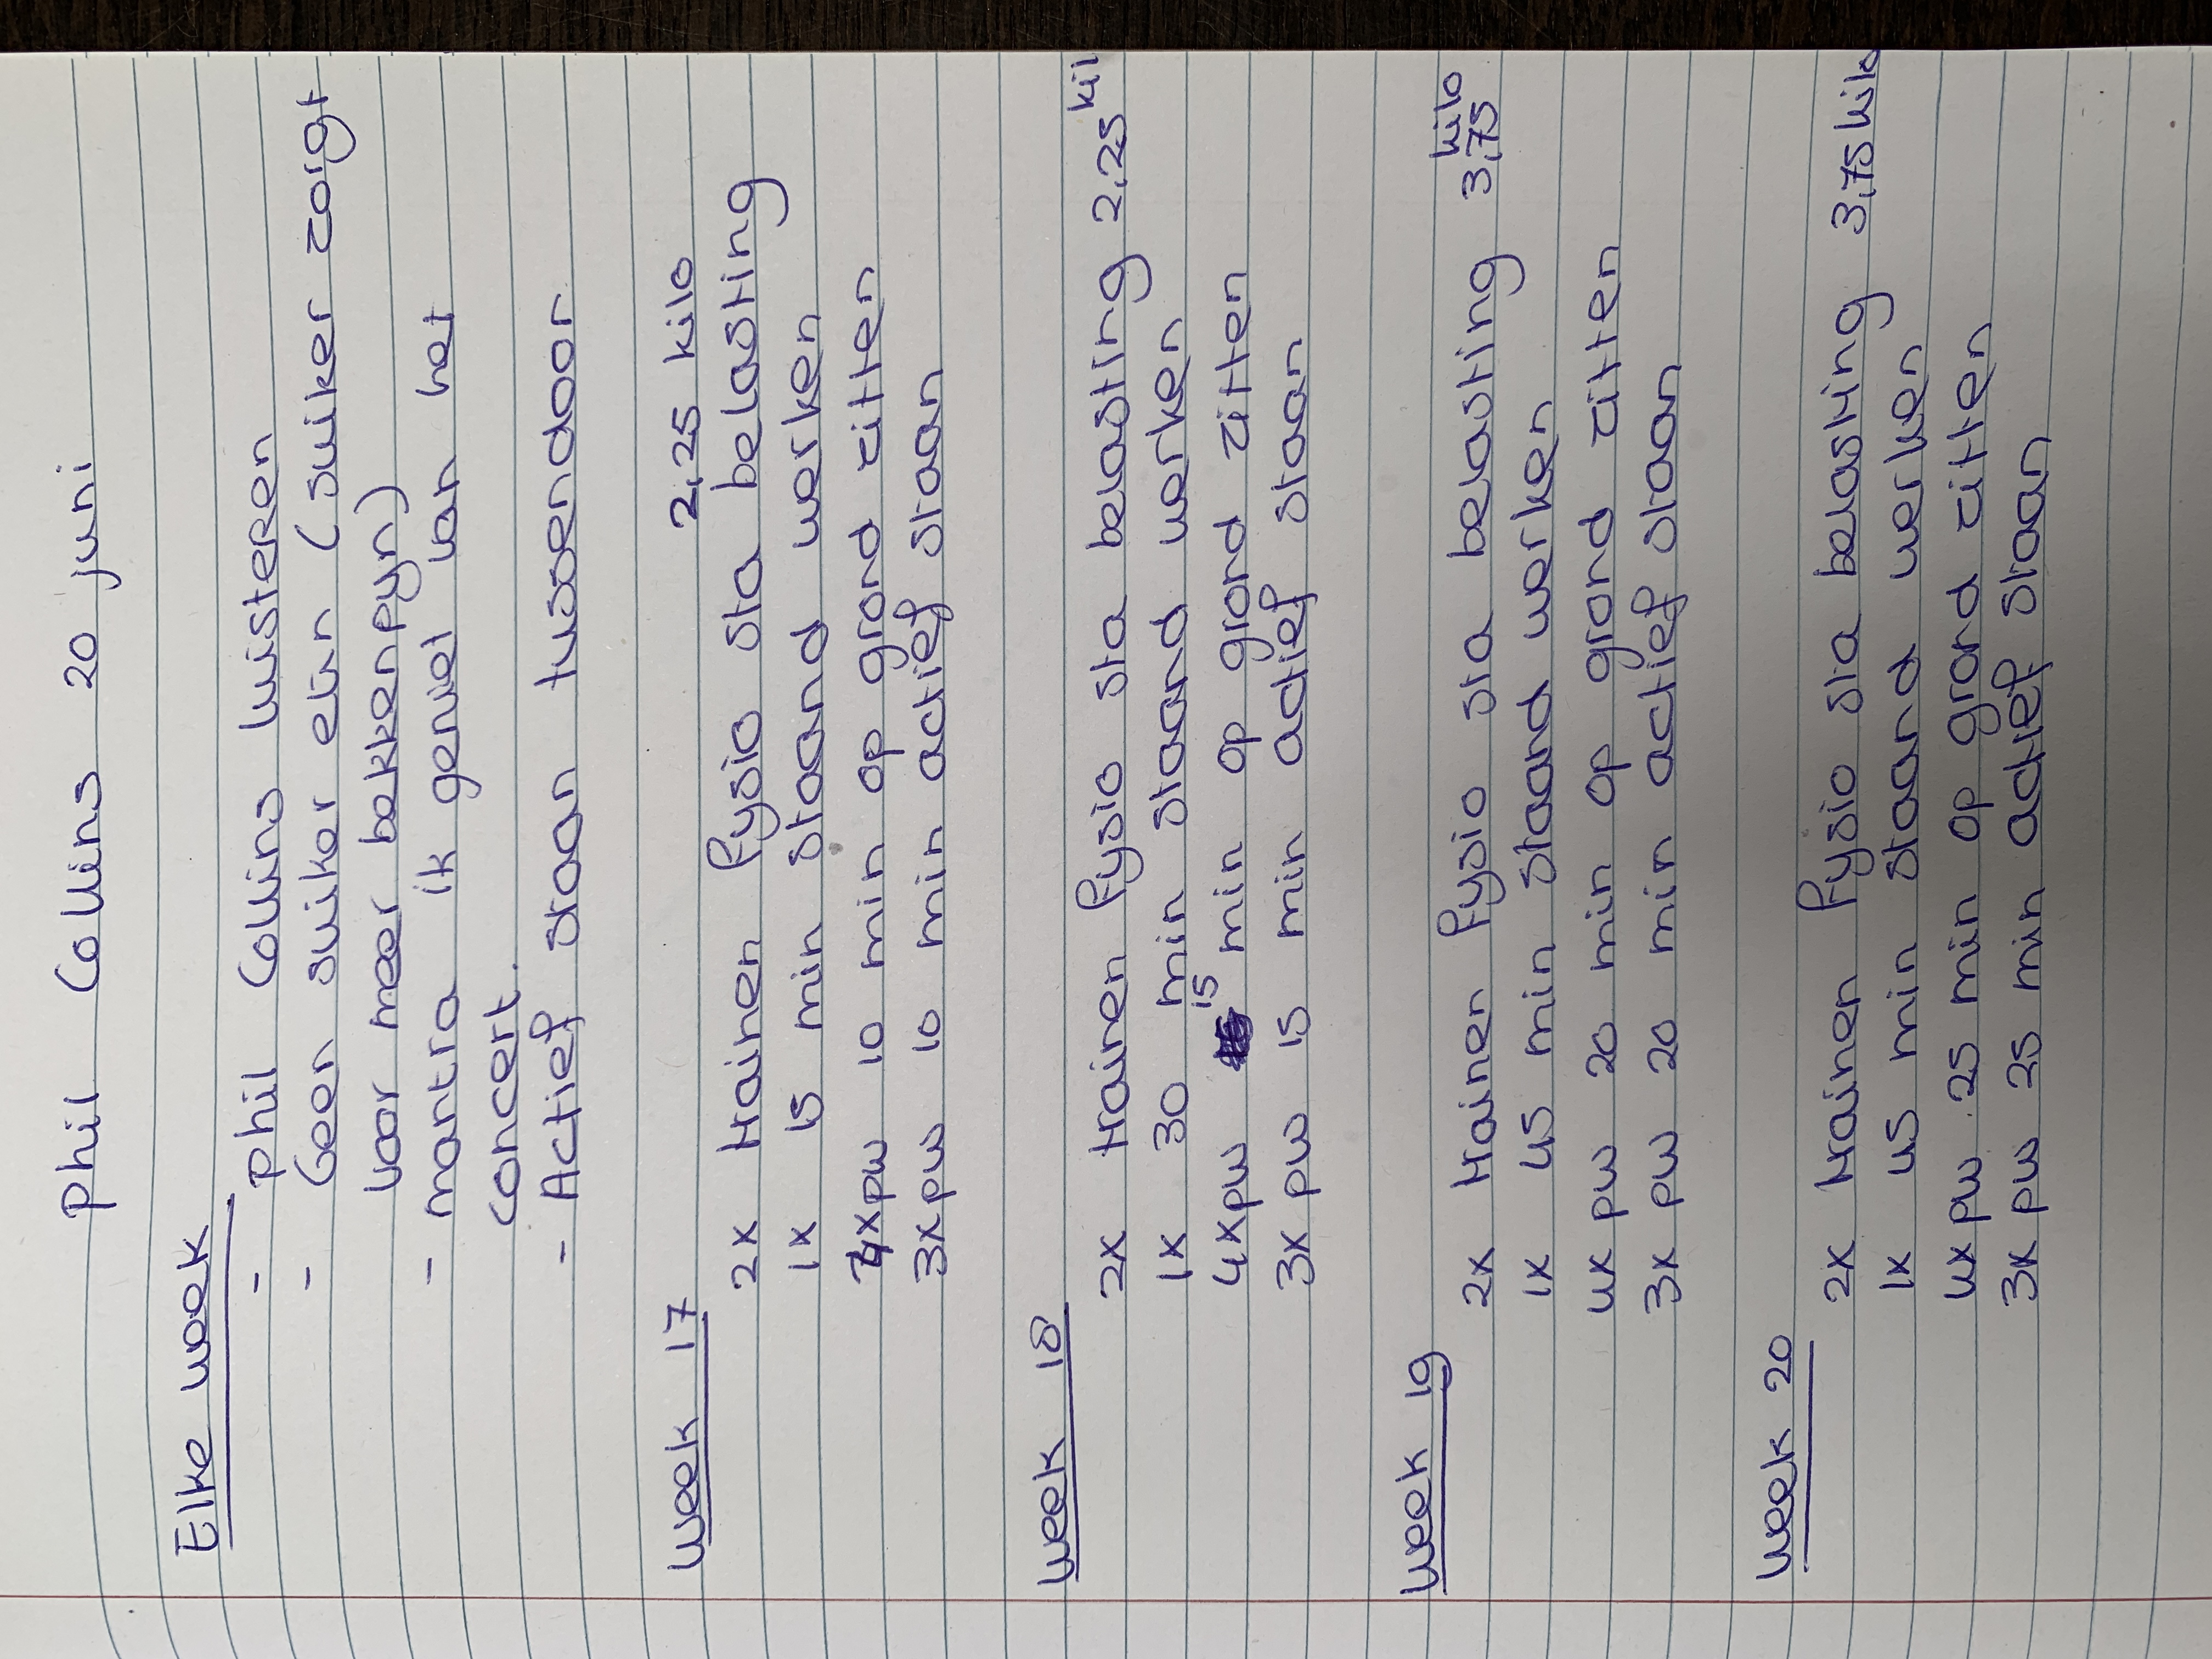 Phil Collins 20 juni
Elke week
- Phil Collins luisteren
- Geen suiker eten (suiker zorgt
voor meer bekkenpyn)
- mantra ik geniet van het
concert.
- Actief staan tussendoor
week 17 2,25 kilo
2x trainen fysio sta belasting
1x 15 min staand werken
4xpw 10 min op grond zitten
3xpw 10 min actief staan
week 18
2x trainen fysio sta belasting 2,25 kil
1x 30 min staand werken
4xpw 15 min op grond zitten
3x pw 15 min actief staan
week 19 kilo
2x trainen fysio sta belasting 3,75
1x 45 min staand werken
4x pw 20 min op grond zitten
3x pw 20 min actief staan
week 20
2x trainen fysio sta belasting 3,75 kilo
1x 45 min staand werken
4x pw 25 min op grond zitten
3x pw 25 min actief staan